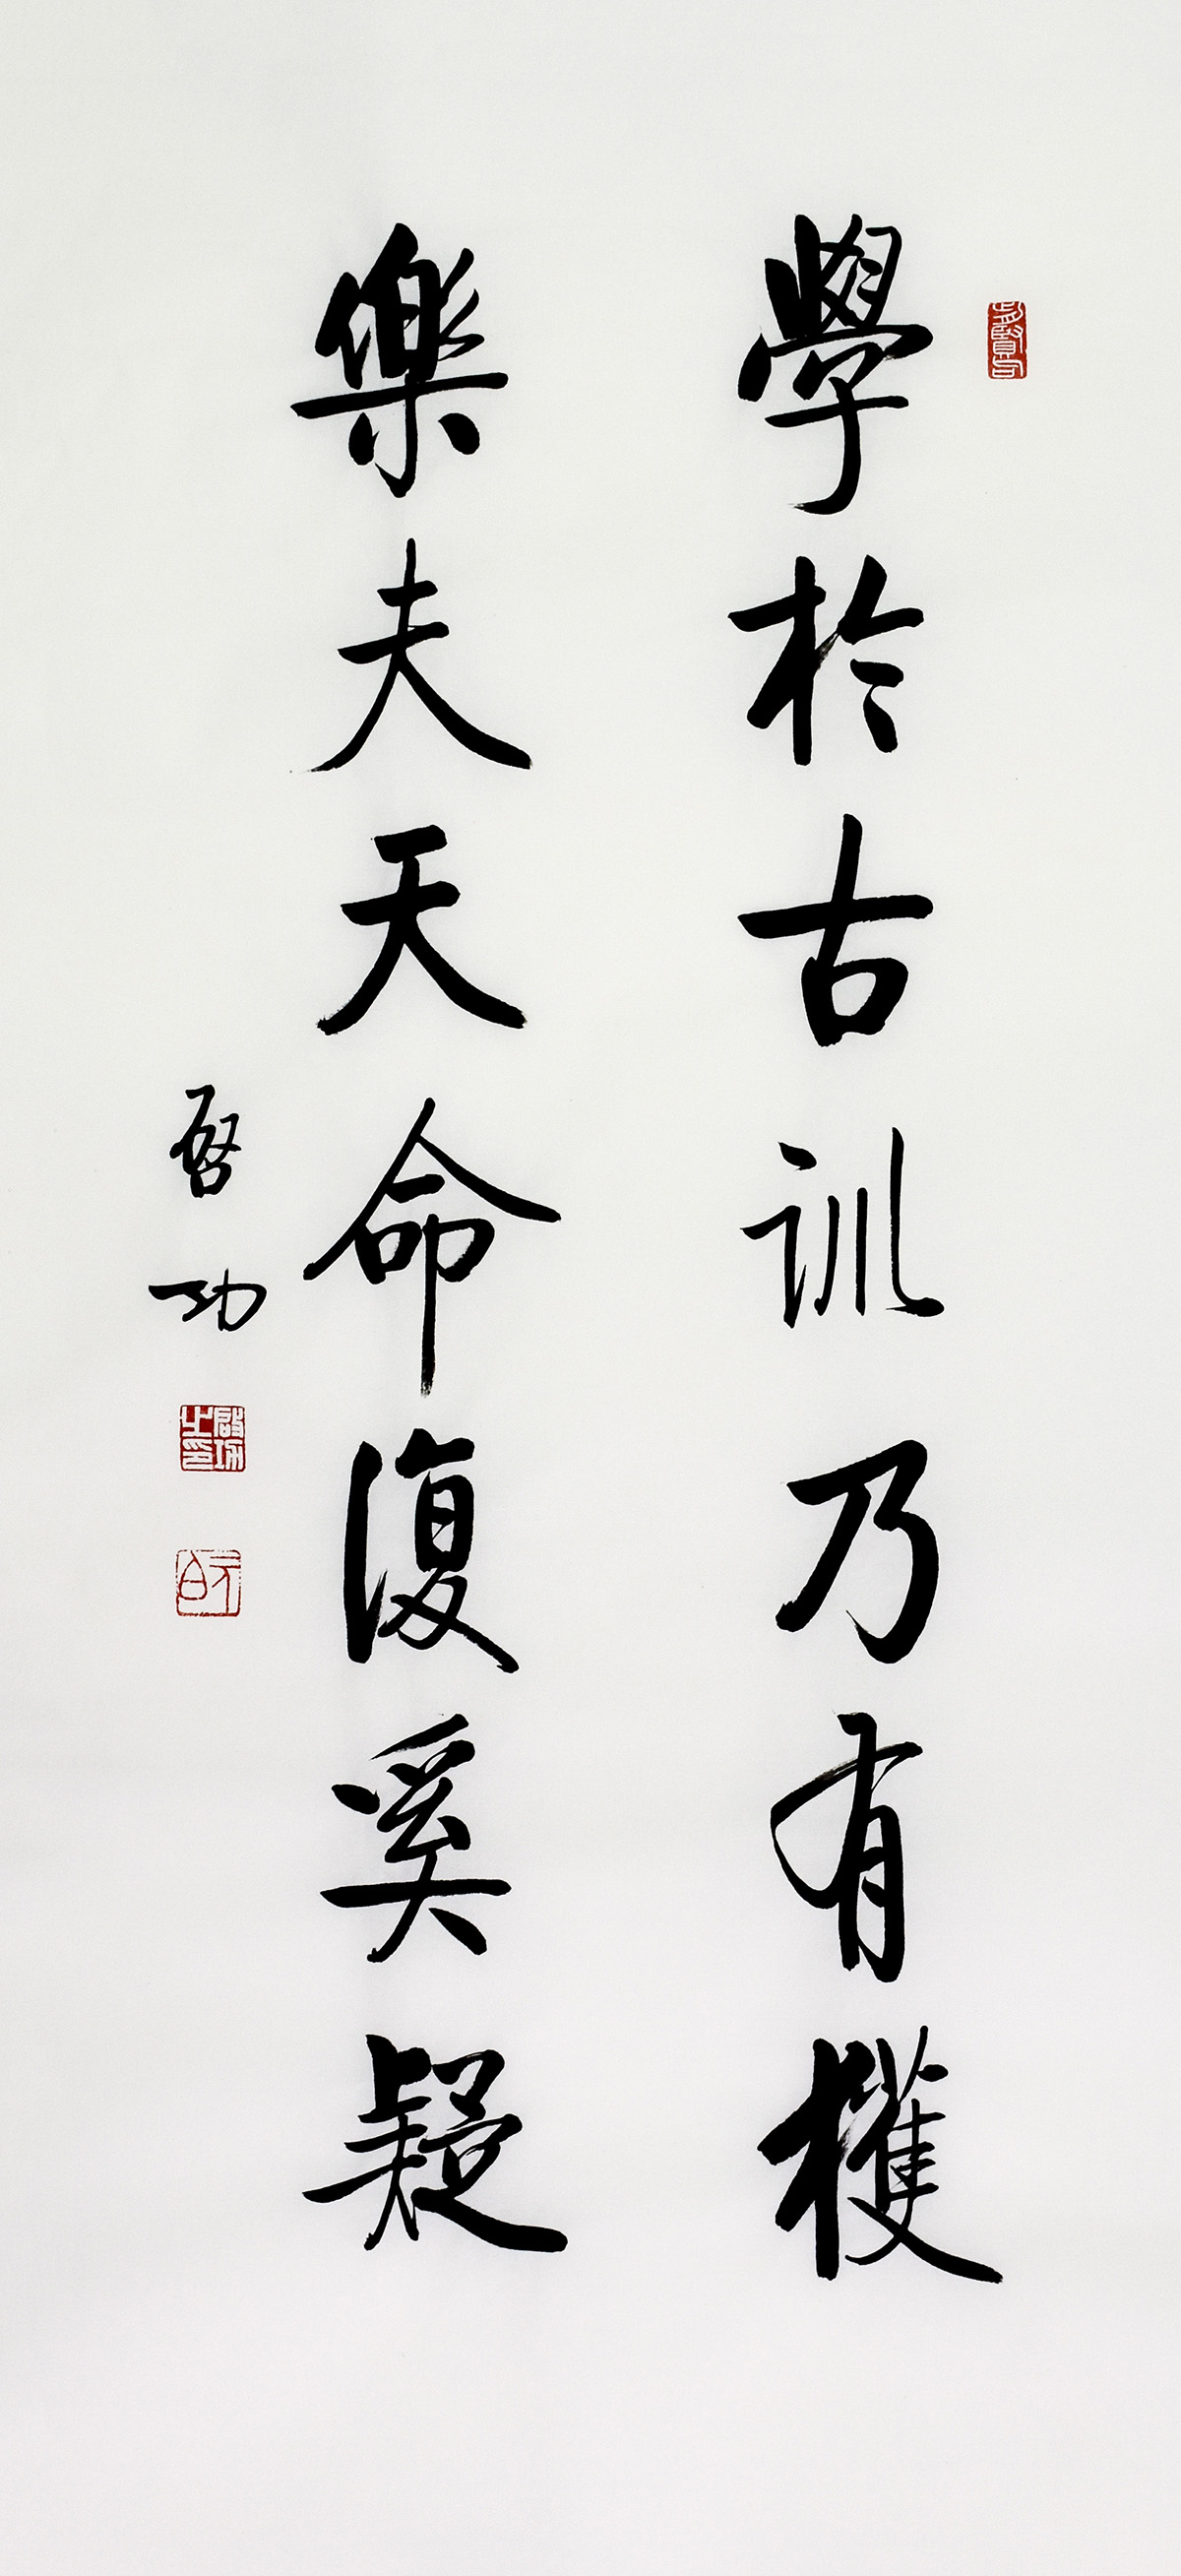 學於古訓乃有獲
樂夫天命復奚疑
啓功
啟功之印